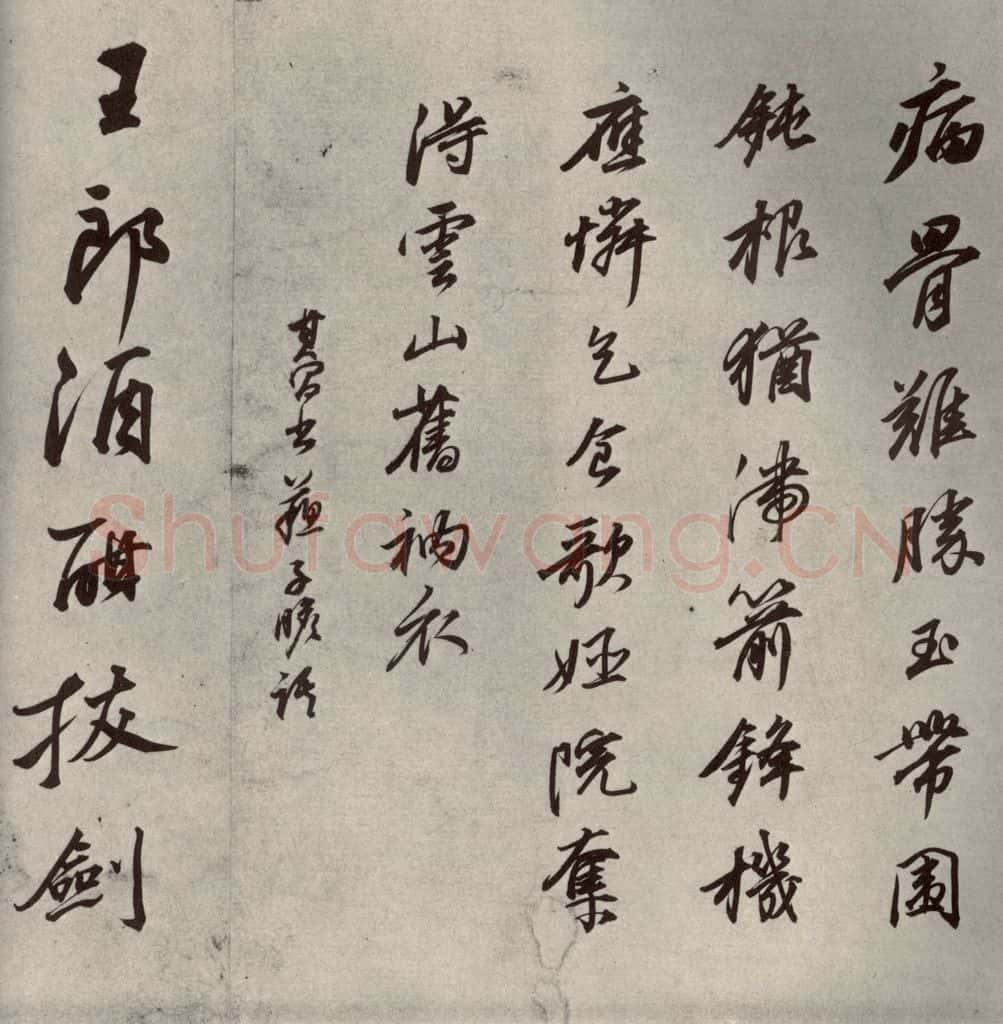 病骨難勝玉帶圍
鈍根猶滯箭鋒機
應憐乞食歌姬院
奪得雲山舊衲衣
其昌書蘇子瞻語
王郎酒酣拔劍
Shufawang.CN